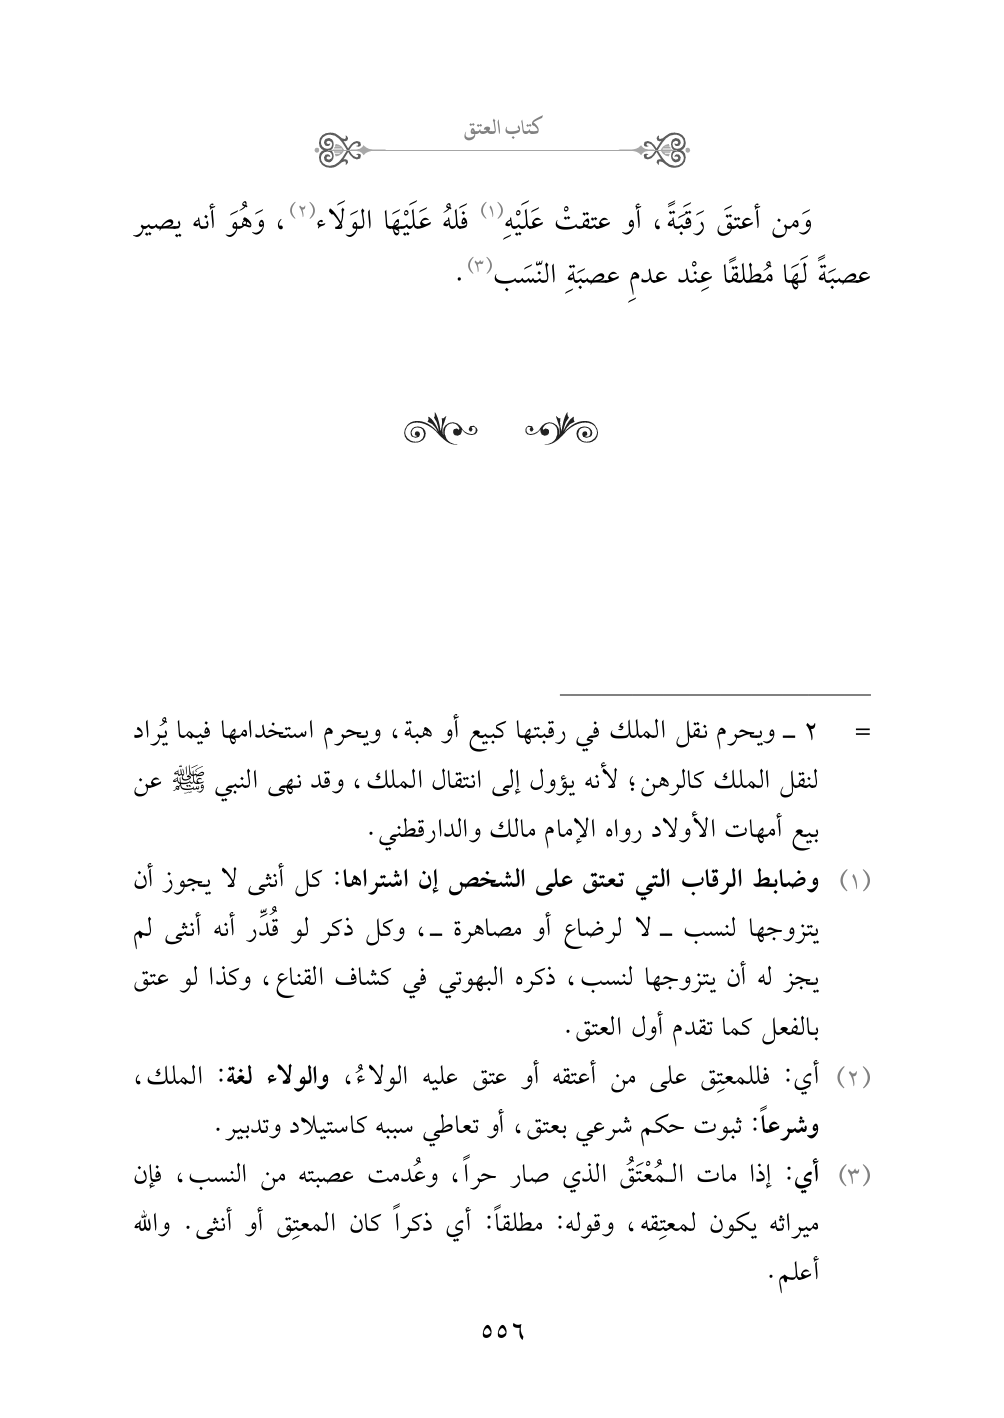 كتاب العتق
وَمن أعتقَ رَقَبَةً، أو عتقتْ عَلَيْهِ(١) فَلهُ عَلَيْهَا الوَلَاء(٢)، وَهُوَ أنه يصير
عصبَةً لَهَا مُطلقًا عِنْد عدمِ عصبَةِ النّسَب(٣).
= ٢ ـ ويحرم نقل الملك في رقبتها كبيع أو هبة، ويحرم استخدامها فيما يُراد
لنقل الملك كالرهن؛ لأنه يؤول إلى انتقال الملك، وقد نهى النبي ﷺ عن
بيع أمهات الأولاد رواه الإمام مالك والدارقطني.
(١) وضابط الرقاب التي تعتق على الشخص إن اشتراها: كل أنثى لا يجوز أن
يتزوجها لنسب ـ لا لرضاع أو مصاهرة ـ، وكل ذكر لو قُدِّر أنه أنثى لم
يجز له أن يتزوجها لنسب، ذكره البهوتي في كشاف القناع، وكذا لو عتق
بالفعل كما تقدم أول العتق.
(٢) أي: فللمعتِق على من أعتقه أو عتق عليه الولاءُ، والولاء لغة: الملك،
وشرعاً: ثبوت حكم شرعي بعتق، أو تعاطي سببه كاستيلاد وتدبير.
(٣) أي: إذا مات المُعْتَقُ الذي صار حراً، وعُدمت عصبته من النسب، فإن
ميراثه يكون لمعتِقه، وقوله: مطلقاً: أي ذكراً كان المعتِق أو أنثى. والله
أعلم.
٥٥٦